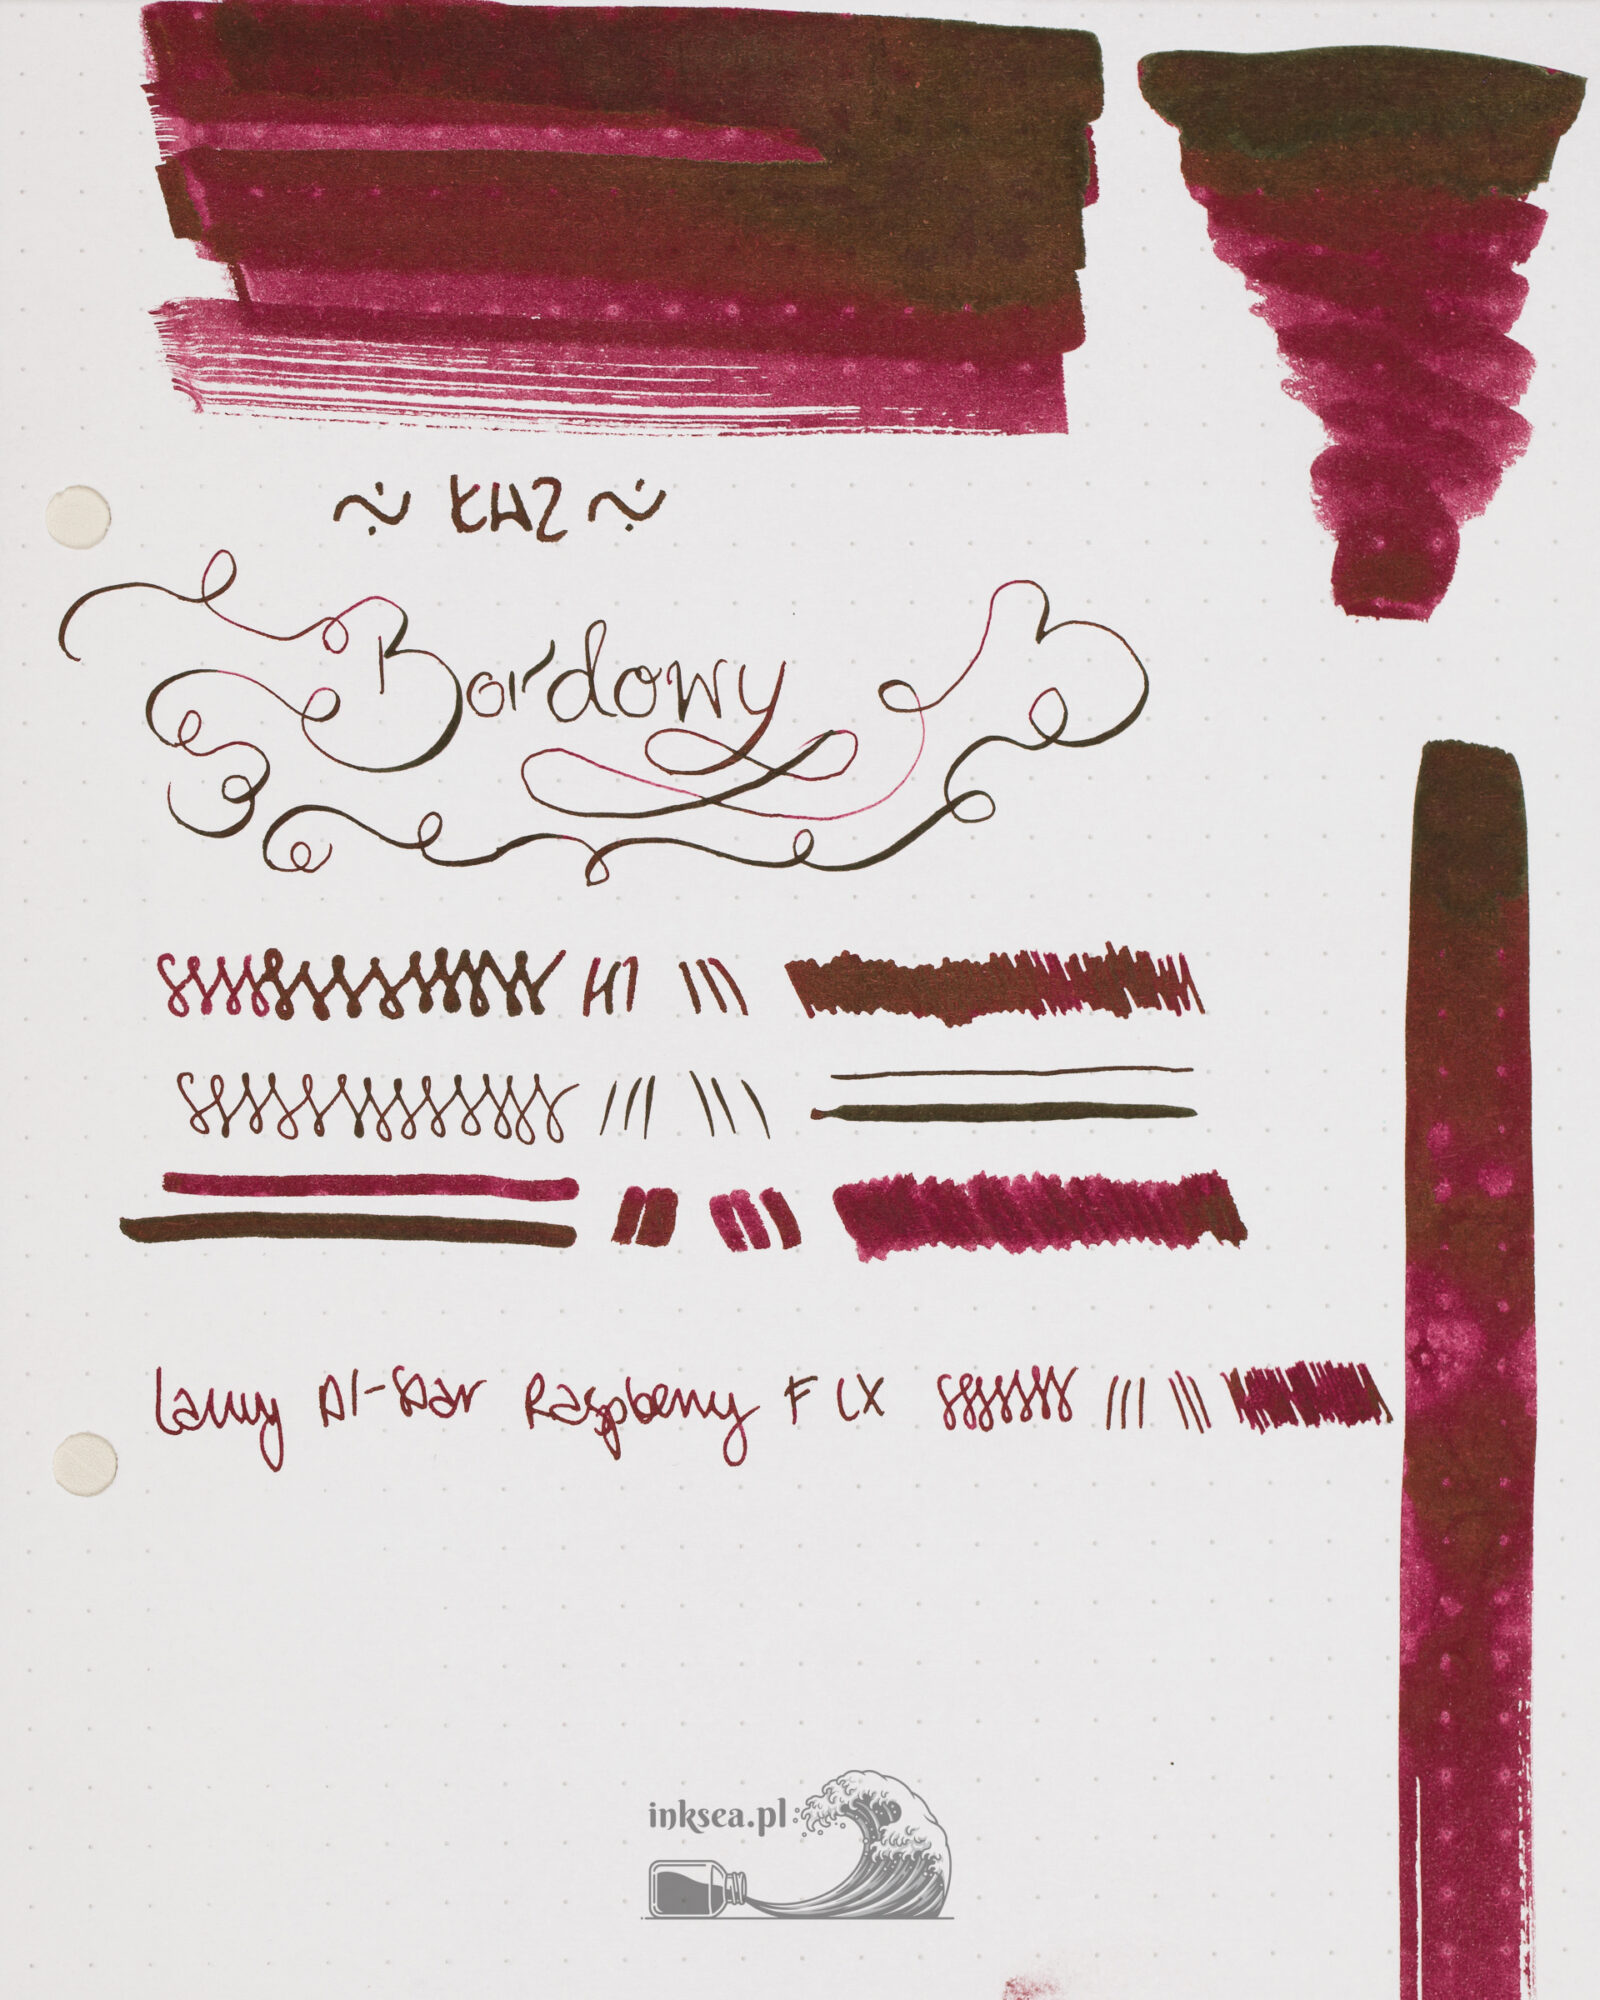 ~ KWZ ~
Bordowy
Lamy Al-Star Raspberry F LX
inksea.pl